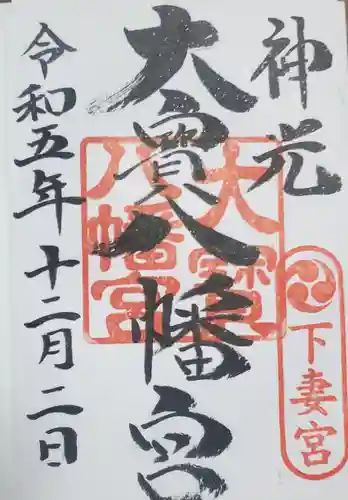 神光
大寶八幡宮
大寶
八幡宮
下妻宮
令和五年十二月二日